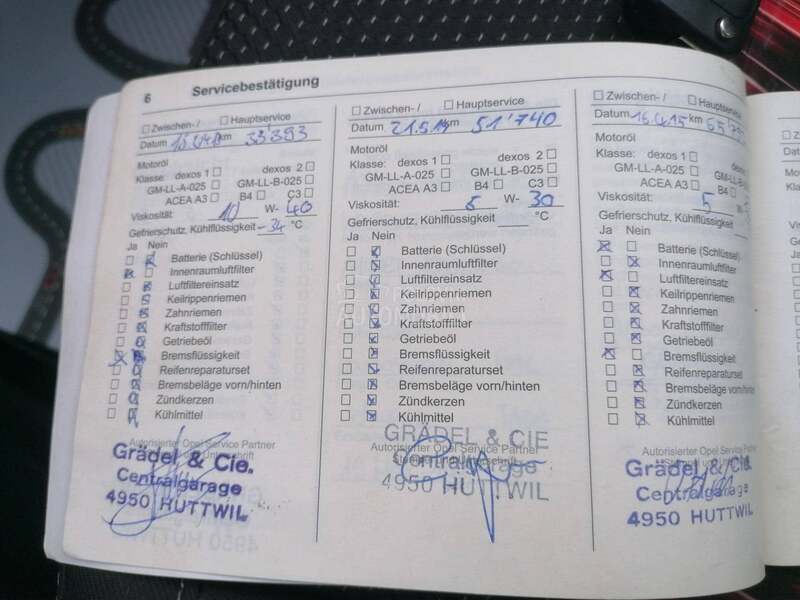 6 Servicebestätigung
Zwischen-/ Hauptservice
Datum km 33'393
Motoröl
Klasse: dexos 1 dexos 2
GM-LL-A-025 GM-LL-B-025
ACEA A3 B4 C3
Viskosität: 10 W- 40
Gefrierschutz, Kühlflüssigkeit -34 °C
Ja Nein
Batterie (Schlüssel)
Innenraumluftfilter
Luftfiltereinsatz
Keilrippenriemen
Zahnriemen
Kraftstofffilter
Getriebeöl
Bremsflüssigkeit
Reifenreparaturset
Bremsbeläge vorn/hinten
Zündkerzen
Kühlmittel
Autorisierter Opel Service Partner
Grädel & Cie.
Centralgarage
4950 HUTTWIL
Zwischen-/ Hauptservice
Datum 21.5.14 km 51'740
Motoröl
Klasse: dexos 1 dexos 2
GM-LL-A-025 GM-LL-B-025
ACEA A3 B4 C3
Viskosität: 5 W- 30
Gefrierschutz, Kühlflüssigkeit °C
Ja Nein
Batterie (Schlüssel)
Innenraumluftfilter
Luftfiltereinsatz
Keilrippenriemen
Zahnriemen
Kraftstofffilter
Getriebeöl
Bremsflüssigkeit
Reifenreparaturset
Bremsbeläge vorn/hinten
Zündkerzen
Kühlmittel
GRÄDEL & CIE
Autorisierter Opel Service Partner
Centralgarage
4950 HUTTWIL
Zwischen-/ Hauptservice
Datum 16.4.15 km
Motoröl
Klasse: dexos 1 dexos
GM-LL-A-025 GM-LL-B-0
ACEA A3 B4
Viskosität: 5 W-
Gefrierschutz, Kühlflüssigkeit
Ja Nein
Batterie (Schlüssel)
Innenraumluftfilter
Luftfiltereinsatz
Keilrippenriemen
Zahnriemen
Kraftstofffilter
Getriebeöl
Bremsflüssigkeit
Reifenreparaturset
Bremsbeläge vorn/hinten
Zündkerzen
Kühlmittel
Autorisierter Opel Service Partner
Grädel & Cie.
Centralgarage
4950 HUTTWIL